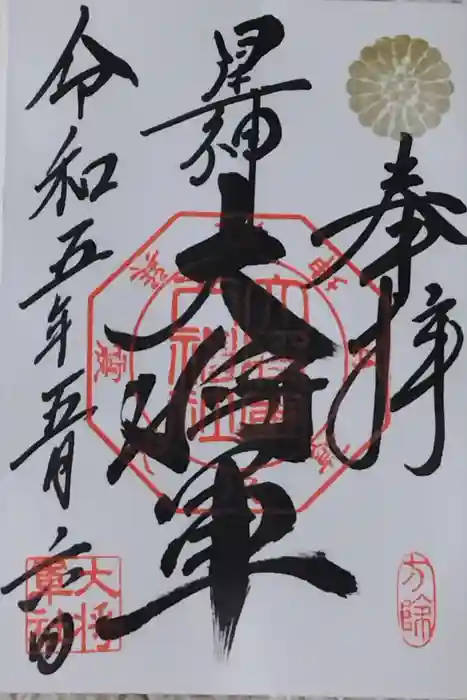 奉拝
星神
大将軍
令和五年五月六日
大将軍神社
大将軍神
方除